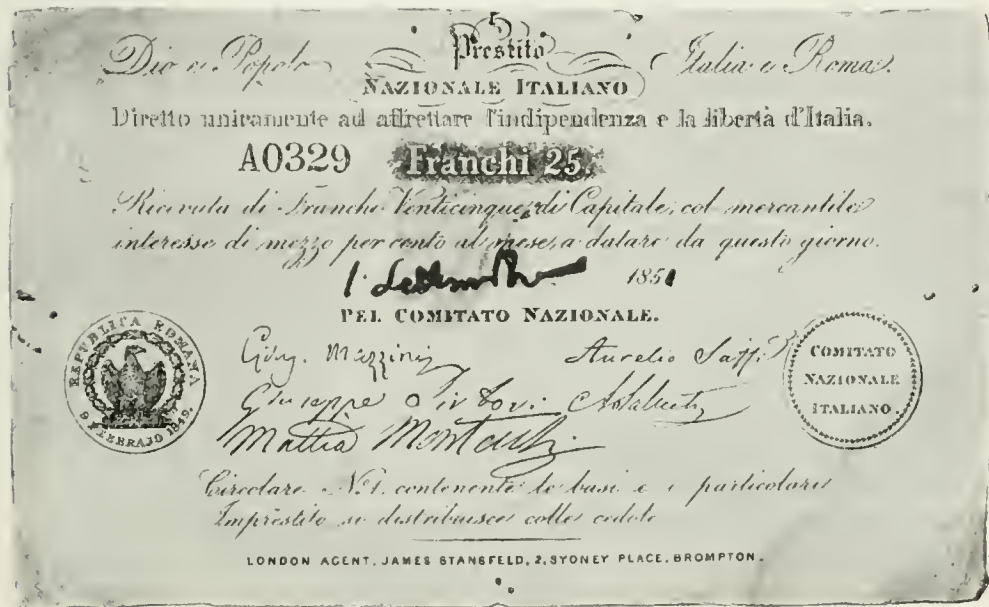 Dio e Popolo Prestito Italia e Roma.
NAZIONALE ITALIANO
Diretto unicamente ad affrettare l'indipendenza e la libertà d'Italia.
A0329 Franchi 25.
Ricevuta di Franchi Venticinque di Capitale, col mercantile
interesse di mezzo per cento al mese, a datare da questo giorno.
1 Settembre 1851
PEL COMITATO NAZIONALE.
REPUBBLICA ROMANA
9 FEBBRAJO 1849.
Giuseppe Mazzini Aurelio Saffi
Giuseppe Sirtori
Mattia Montecchi
COMITATO
NAZIONALE
ITALIANO.
Circolare N.1. contenente le basi e i particolari
Imprestito si distribuisce colle cedole
LONDON AGENT, JAMES STANSFELD, 2, SYDNEY PLACE, BROMPTON.